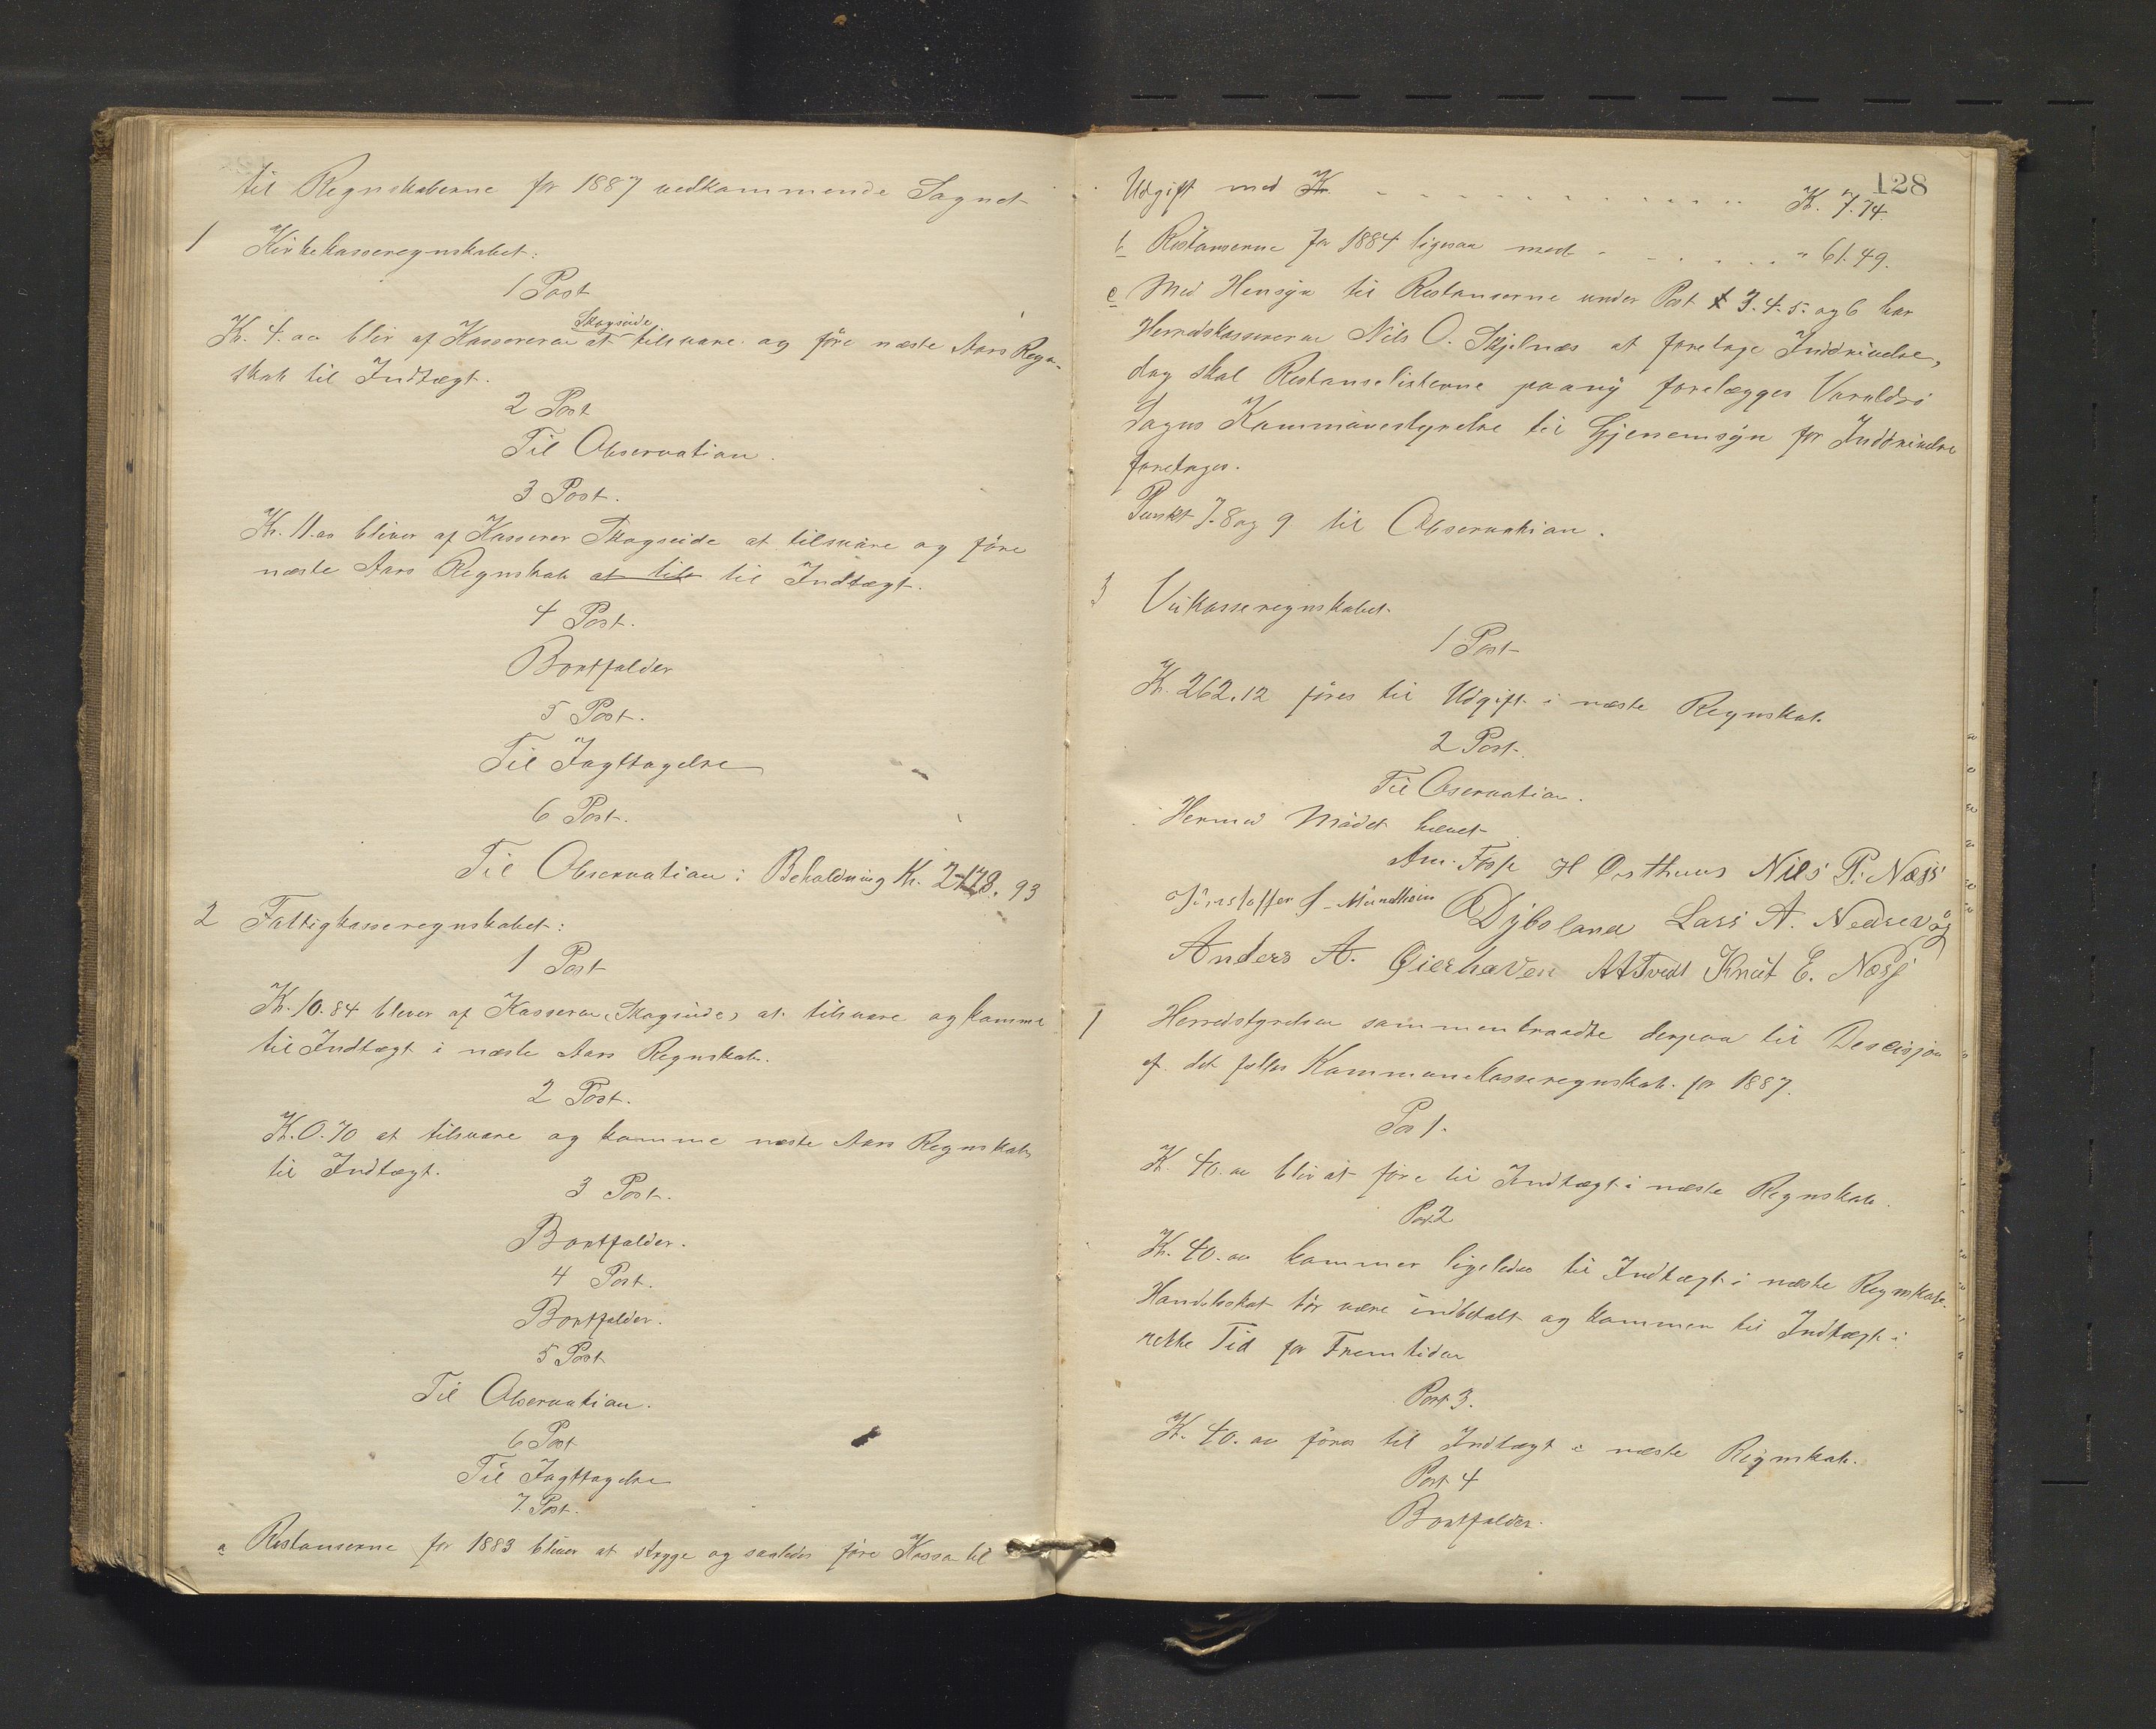 til Regnskaberne for 1887 vedkommende Sagnet
1 Kirkekasseregnskabet:
1 Post
Kr. 4.00 bliv af Kassereren Skogseide at tilsvare og före næste Aars Regn-
skab til Indtægt.
2 Post
Til Observation.
3 Post.
Kr. 11.00 bliver af Kasserer Skogseide at tilsvare og före
næste Aars Regnskab at til til Indtægt.
4 Post.
Bortfalder
5 Post.
Til Iagttagelse
6 Post.
Til Observation: Beholdning Kr. 2178.93
2 Fattigkasseregnskabet:
1 Post
Kr. 10.84 bliver af Kasseren, Skogseide, at tilsvare og komme
til Indtægt i næste Aars Regnskab.
2 Post.
Kr. 0.70 at tilsvare og komme næste Aars Regnskab
til Indtægt.
3 Post.
Bortfalder.
4 Post.
Bortfalder.
5 Post
Til Observation.
6 Post
Til Iagttagelse
7. Post.
a Restanserne for 1883 bliver at stryge og saaledes före Kassa til
128
Udgift med Kr. Kr. 7.74.
b Restanserne for 1884 ligesaa med " 61.49.
c Med Hensyn til Restanserne under Post 3.4.5. og 6 har
Herredskassereren Nils O. Skjelnæs at foretage Inddrivelse,
dog skal Restanselisterne paany forelægges Varaldsö
Sogns Kommunestyrelse til Gjenemsyn för Inddrivelse
foretages.
Punkt 7.8 og 9 til Observation.
3 Veikasseregnskabet.
1 Post
Kr. 262.12 föres til Udgift i næste Regnskab.
2 Post.
Til Observation.
Hermed Mödet hævet
H Østhuus Nils P. Næss
Dybsland Lars A. Nedrevåg
Anders A. Øierhavn A A Tvedt Knut E. Næss
1 Herredstyrelsen sammentraadte derpaa til Descisjon
af det fælles Kommunekasseregnskab for 1887.
Post 1.
Kr. 40.00 bliv at före til Indtægt i næste Regnskab.
Post 2
Kr. 40.00 kommer ligeledes til Indtægt i næste Regnskab.
Handelsskat bör være indbetalt og kommen til Indtægt i
rette Tid for Fremtiden
Post 3.
Kr. 40.00 föres til Indtægt i næste Regnskab.
Post 4
Bortfalder.